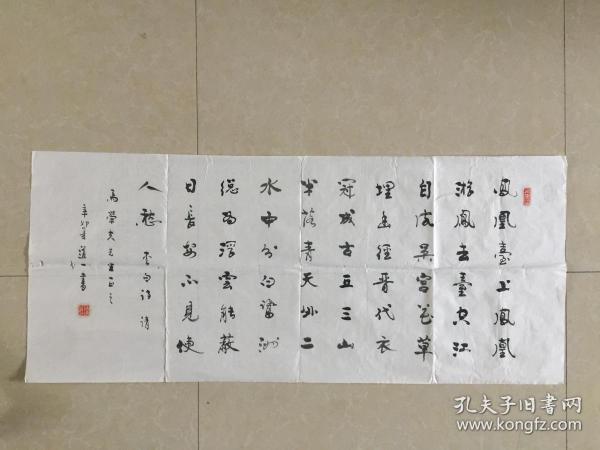 鳳凰臺上鳳凰
游鳳去臺空江
自流吳宮花草
埋幽徑晉代衣
冠成古丘三山
半落青天外二
水中分白鷺洲
總為浮雲能蔽
日長安不見使
人愁 李白詩 請
馬榮夫兄正之
辛卯 道一書
孔夫子旧书网
www.kongfz.com